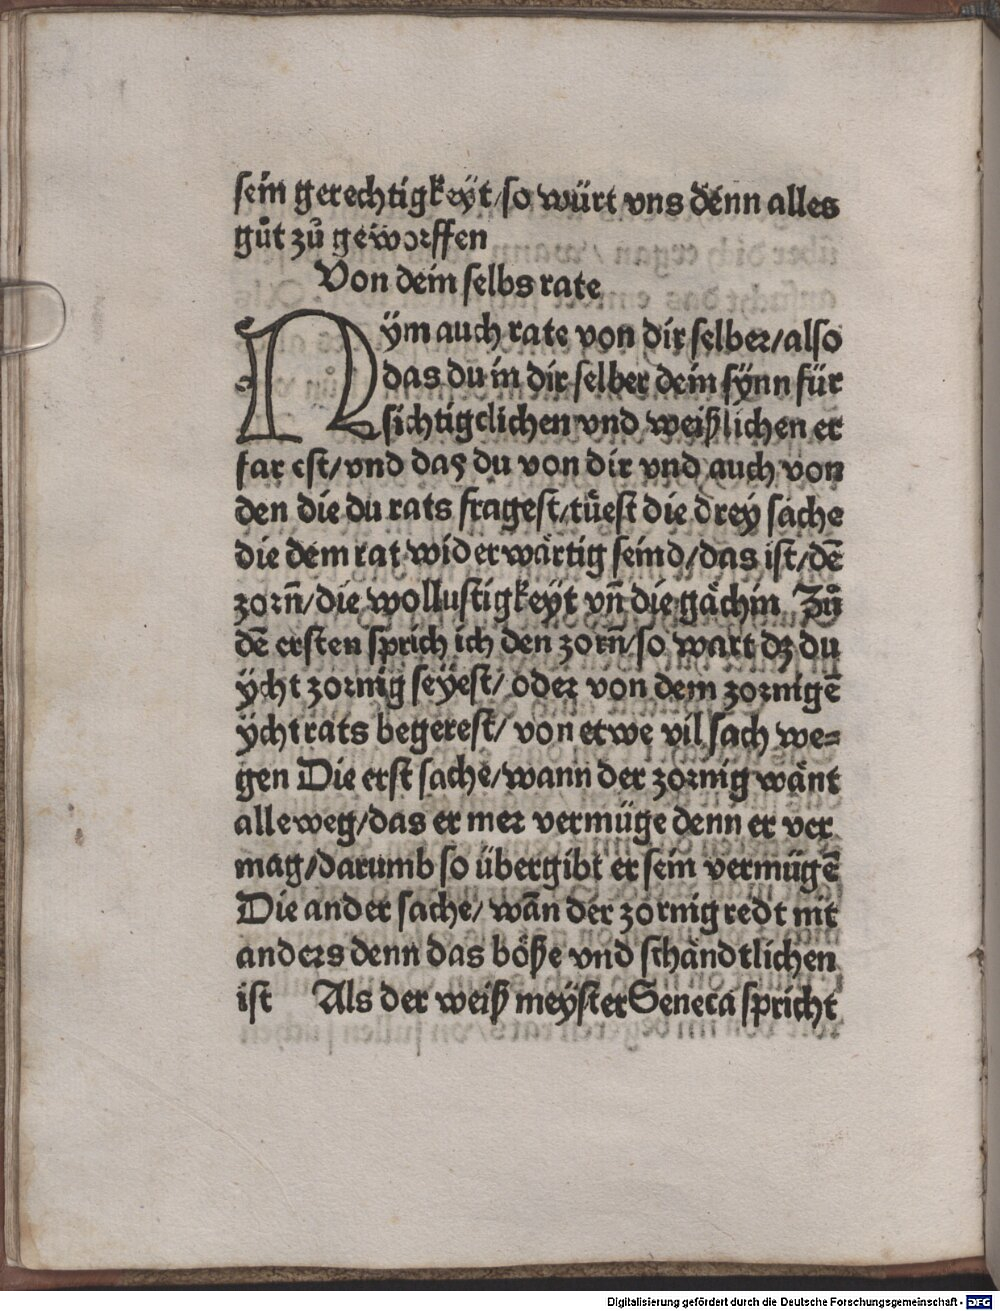 sein gerechtigkeyt/so würt vns denn alles
gůt zů geworffen
Von dein selbs rate
Nÿm auch rate von dir selber/also
das du in dir selber dein sÿnn für
sichtigclichen vnd weißlichen er
far est/vnd daz du von dir vnd auch von
den die du rats fragest/tüest die drey sache
die dem rat wider wärtig seind/das ist/dē
zorn̄/die wollustigkeyt vn̄ die gächin Zů
dē ersten sprich ich den zorn̄/so wart dz du
ÿcht zornig seÿest/oder von dem zornigē
ÿcht rats begerest/von etwe vil sach we=
gen Die erst sache/wann der zornig wänt
alleweg/das er mer vermüge denn er ver
mag/darumb so übergibt er sein vermügē
Die ander sache/wān der zornig redt nit
anders denn das böße vnd schändtlichen
ist Als der weiß meÿster Seneca spricht
Digitalisierung gefördert durch die Deutsche Forschungsgemeinschaft - DFG